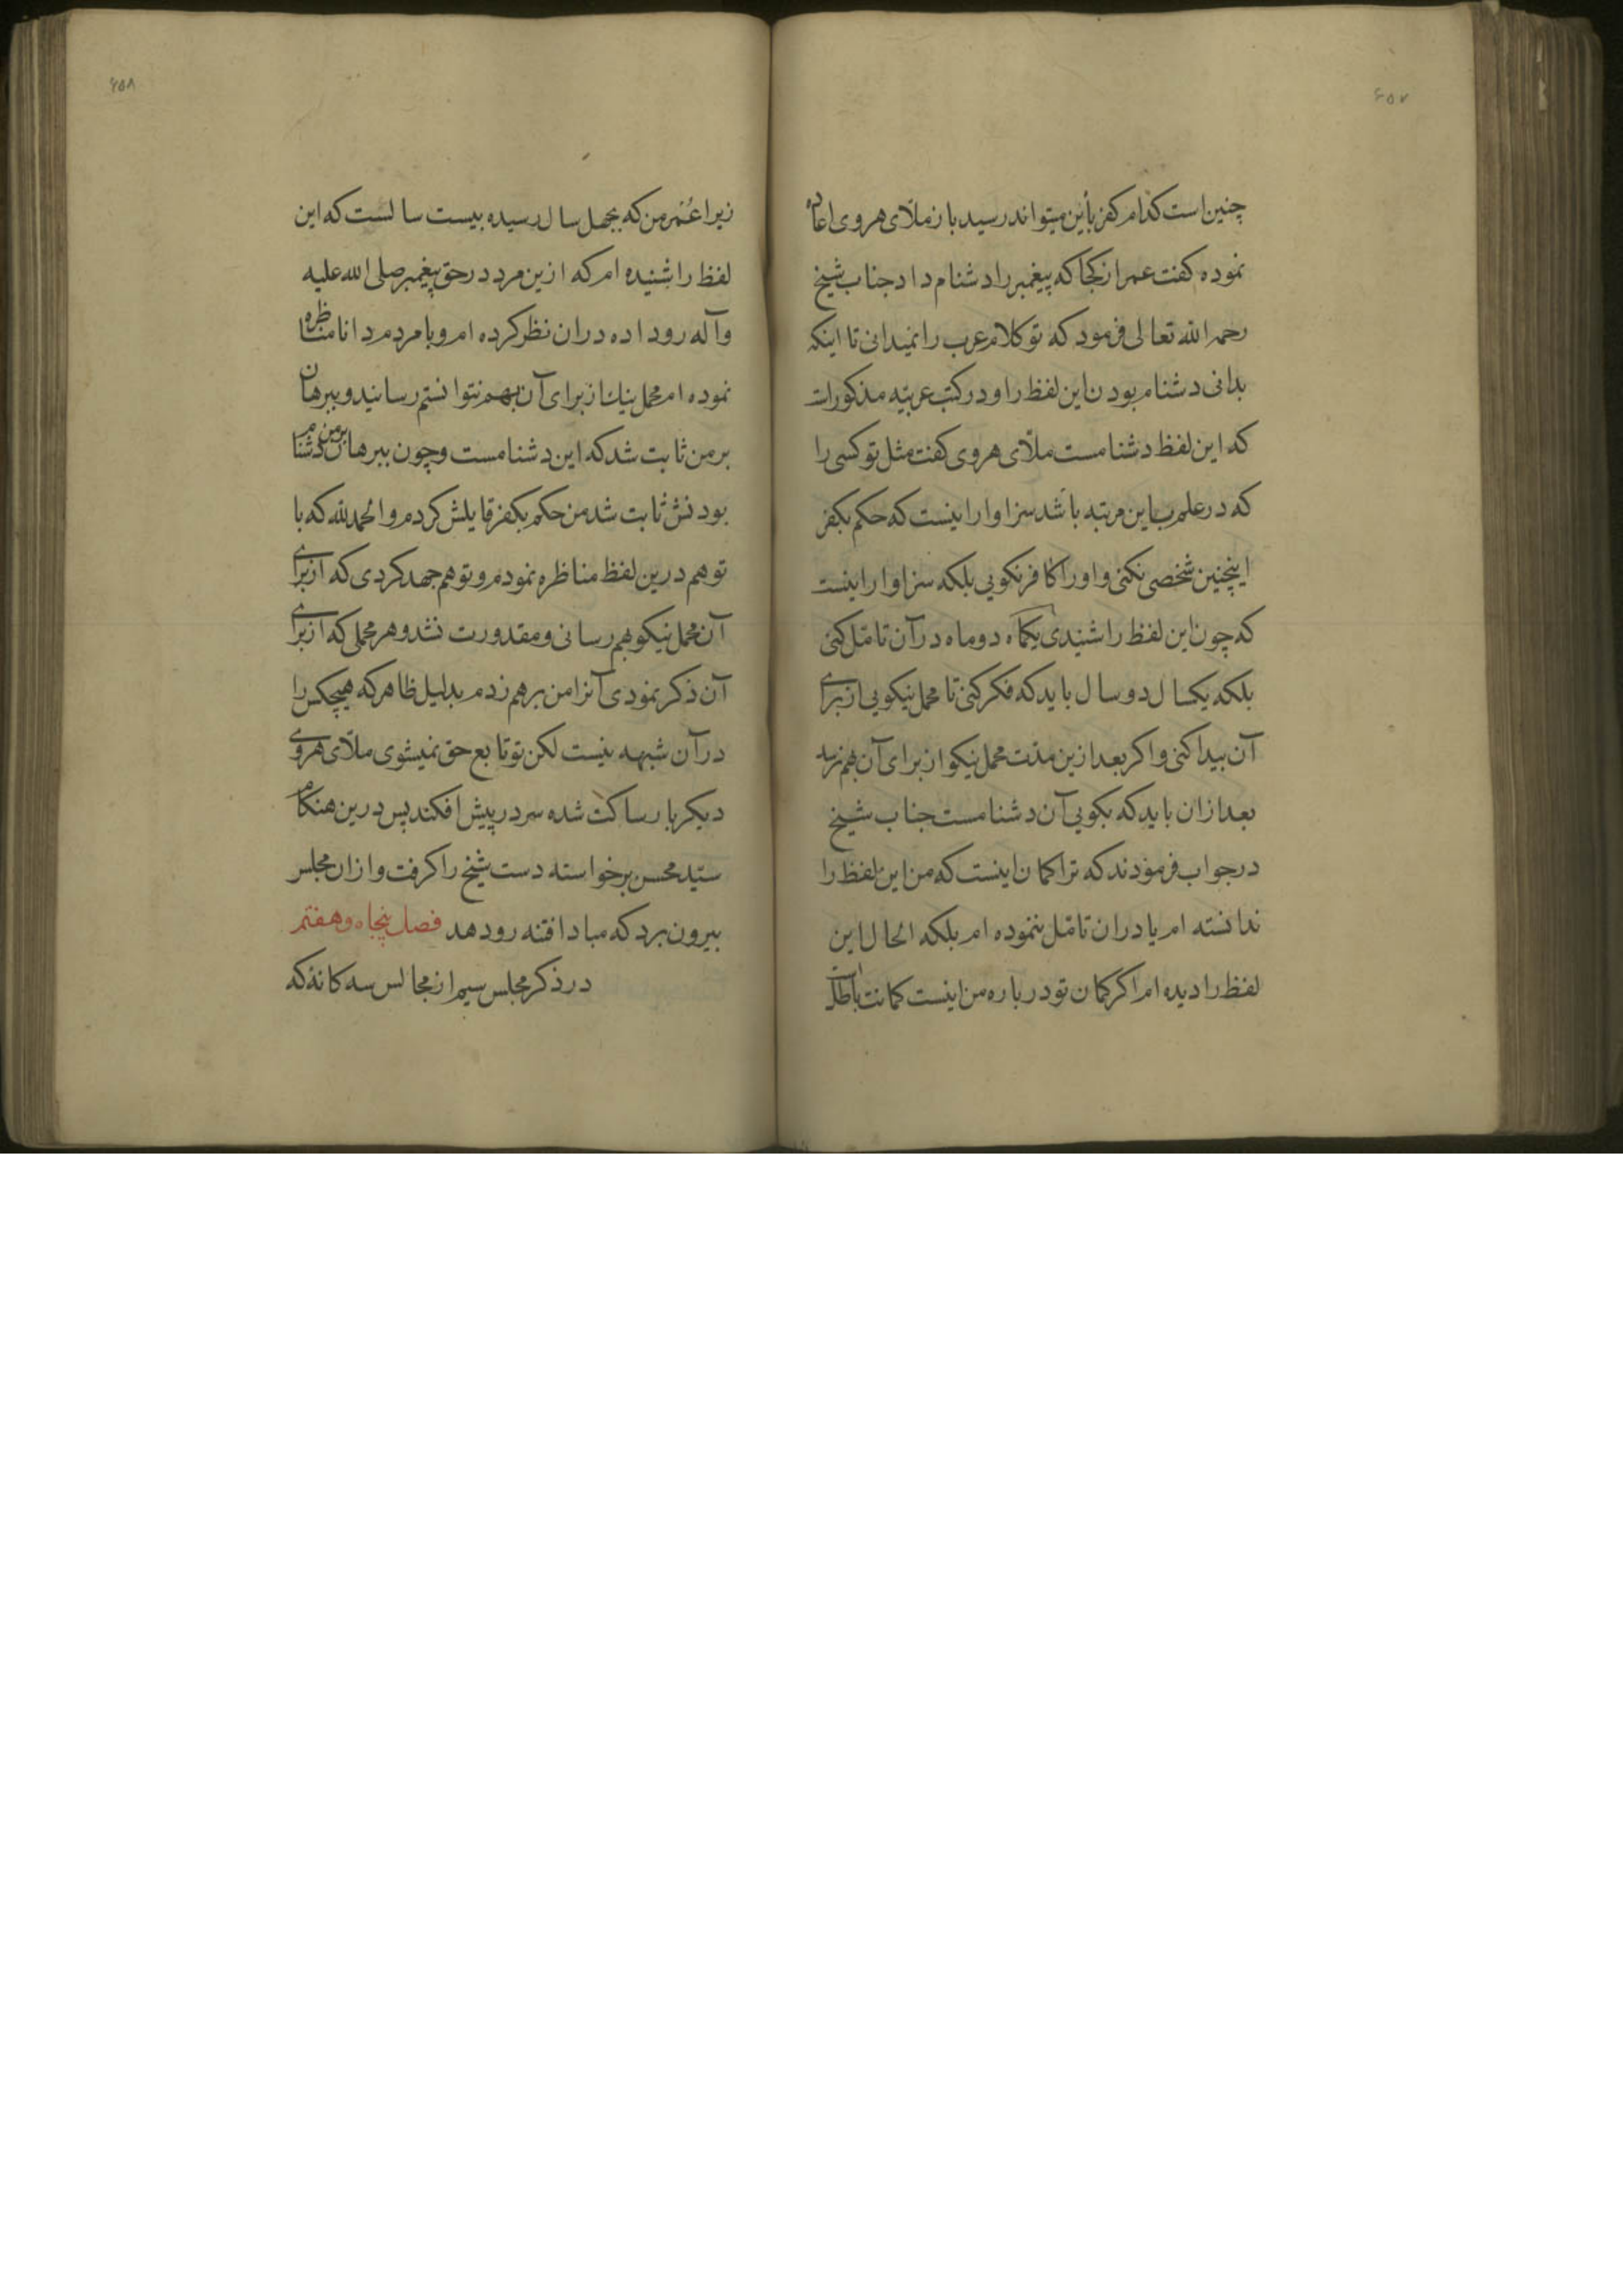 ۶۵۷
چنین است کدام کفر باین میتواند رسید باز ملّای هروی اعاده
نموده کفت عمر از کجا که پیغمبر را دشنام داد جناب شیخ
رحمه الله تعالی فرمود که تو کلام عرب را نمیدانی تا اینکه
بدانی دشنام بودن این لفظ را و در کتب عربیّه مذکور است
که این لفظ دشنامست ملّای هروی کفت مثل تو کسی را
که در علم باین مرتبه باشد سزاوار اینست که حکم بکفر
اینچنین شخصی نکنی و اورا کافر نکویی بلکه سزاوار اینست
که چون این لفظ را شنیدی یکماه دو ماه در آن تامّل کنی
بلکه یکسال دو سال باید که فکر کنی تا محمل نیکویی از برای
آن پیدا کنی و اکر بعد ازین مدّت محمل نیکو از برای آن بهم نرسد
بعد ازان باید که بکویی آن دشنامست جناب شیخ
در جواب فرمودند که ترا کمان اینست که من این لفظ را
ندانسته ام یا دران تامّل ننموده ام بلکه الحال این
لفظ را دیده ام اکر کمان تو درباره من اینست کمانت باطلست
۶۵۸
زیرا عُمر من که بچهل سال رسیده بیست سالست که این
لفظ را شنیده ام که ازین مرد در حق پیغمبر صلی الله علیه
وآله رو داده دران نظر کرده ام و با مردم دانا مناظره
نموده ام محمل نیك از برای آن بهم نتوانستم رسانید و ببرهان
بر من ثابت شد که این دشنامست و چون ببرهان بر من دشنام
بودنش ثابت شد من حکم بکفر قایلش کردم و الحمد لله که با
تو هم درین لفظ مناظره نمودم و تو هم جهد کردی که از برای
آن محمل نیکو بهم رسانی و مقدورت نشد و هر محملی که از برای
آن ذکر نمودی آنرا من برهم زدم بدلیل ظاهر که هیچکس را
در آن شبهه نیست لکن تو تابع حق نمیشوی ملّای هروی
دیکر بار ساکت شده سر در پیش افکند پس درین هنکام
سیّد محسن برخواسته دست شیخ را کرفت و ازان مجلس
بیرون برد که مبادا فتنه رو دهد فصل پنجاه و هفتم
در ذکر مجلس سیم از مجالس سه کانه که